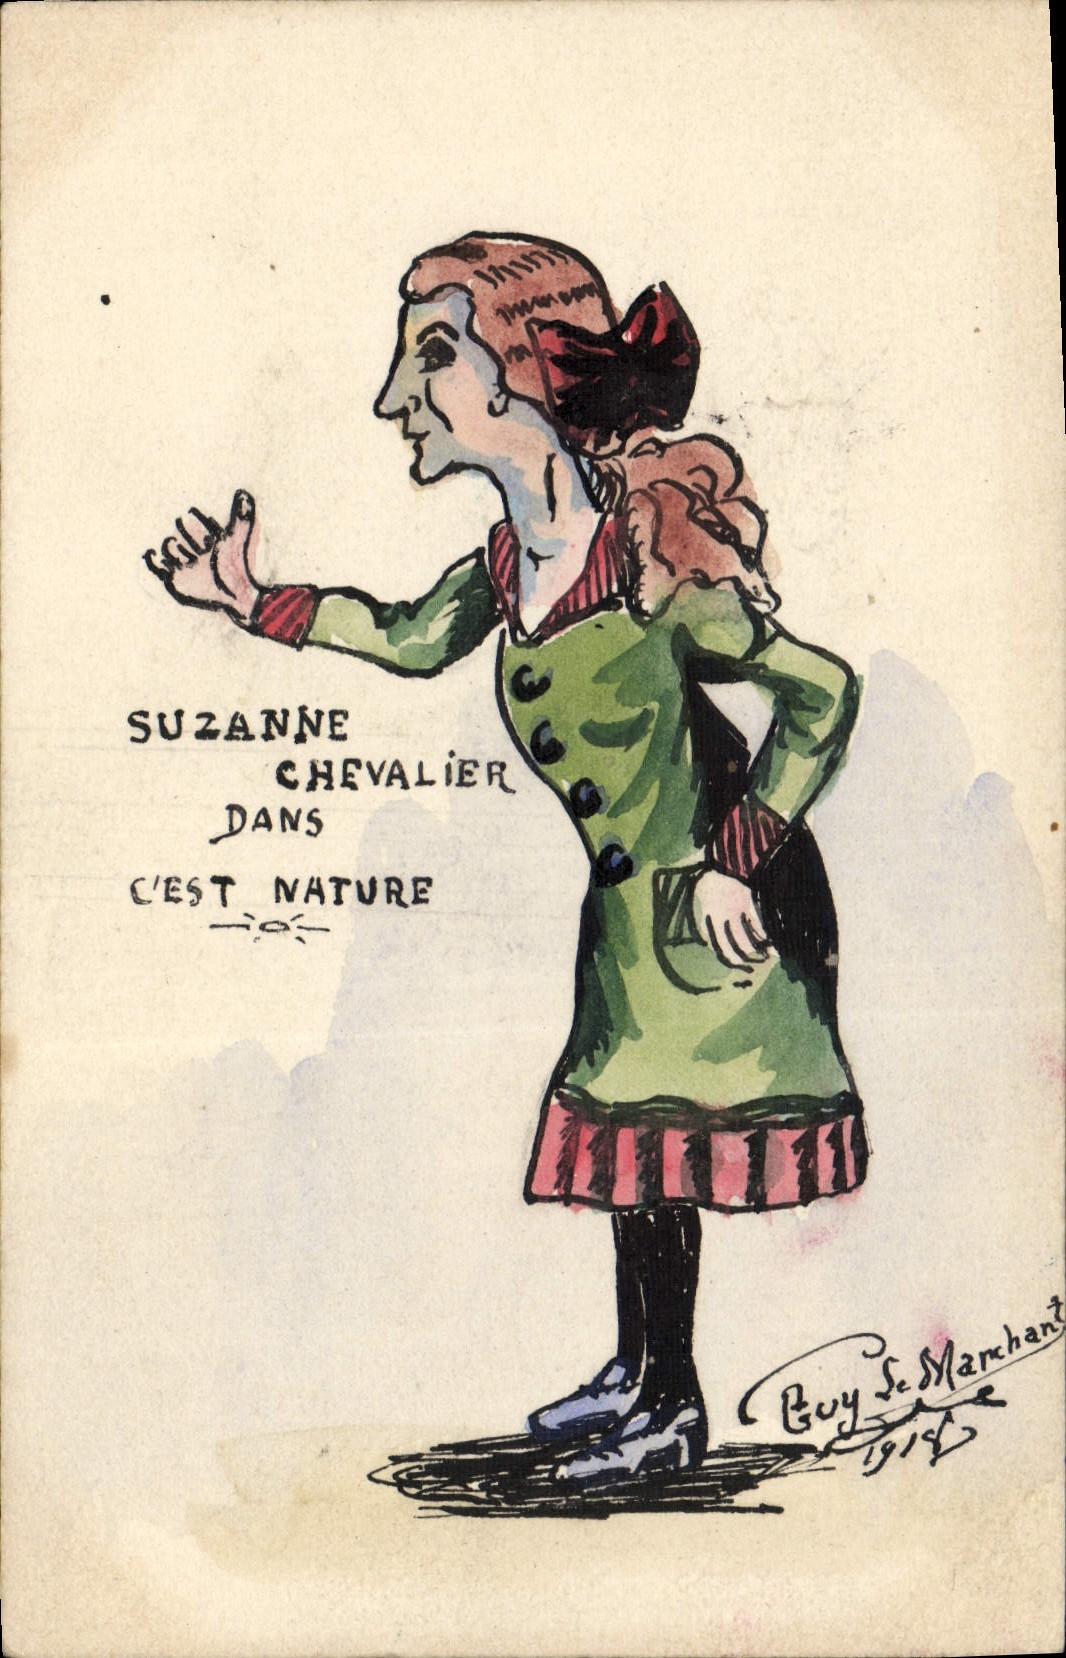 SUZANNE
CHEVALIER
DANS
C'EST NATURE
Guy Le Marchant